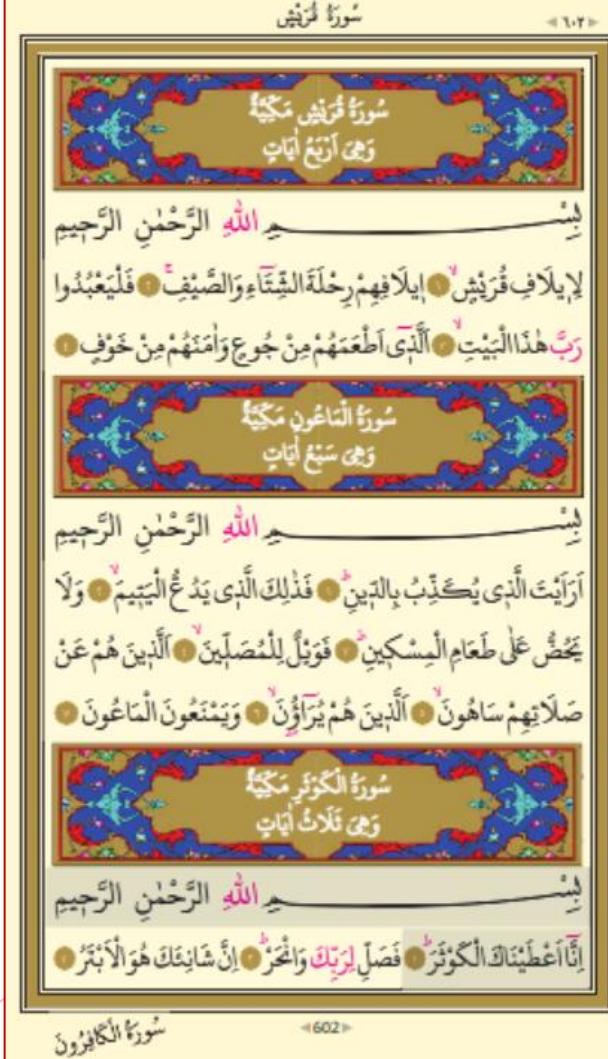 سُورَةُ قُرَيْشٍ
﴿٦٠٢﴾
سُورَةُ قُرَيْشٍ مَكِّيَّةٌ
وَهِىَ اَرْبَعُ اٰيَاتٍ
بِسْمِ اللّٰهِ الرَّحْمٰنِ الرَّحِيمِ
لِا۪يلَافِ قُرَيْشٍۙ ﴿١﴾ ا۪يلَافِهِمْ رِحْلَةَ الشِّتَٓاءِ وَالصَّيْفِۚ ﴿٢﴾ فَلْيَعْبُدُوا
رَبَّ هٰذَا الْبَيْتِۙ ﴿٣﴾ اَلَّذ۪ٓى اَطْعَمَهُمْ مِنْ جُوعٍ وَاٰمَنَهُمْ مِنْ خَوْفٍ ﴿٤﴾
سُورَةُ الْمَاعُونِ مَكِّيَّةٌ
وَهِىَ سَبْعُ اٰيَاتٍ
بِسْمِ اللّٰهِ الرَّحْمٰنِ الرَّحِيمِ
اَرَاَيْتَ الَّذ۪ى يُكَذِّبُ بِالدّ۪ينِۜ ﴿١﴾ فَذٰلِكَ الَّذ۪ى يَدُعُّ الْيَت۪يمَۙ ﴿٢﴾ وَلَا
يَحُضُّ عَلٰى طَعَامِ الْمِسْك۪ينِۜ ﴿٣﴾ فَوَيْلٌ لِلْمُصَلّ۪ينَۙ ﴿٤﴾ اَلَّذ۪ينَ هُمْ عَنْ
صَلَاتِهِمْ سَاهُونَۙ ﴿٥﴾ اَلَّذ۪ينَ هُمْ يُرَٓاؤُ۫نَۙ ﴿٦﴾ وَيَمْنَعُونَ الْمَاعُونَ ﴿٧﴾
سُورَةُ الْكَوْثَرِ مَكِّيَّةٌ
وَهِىَ ثَلَاثُ اٰيَاتٍ
بِسْمِ اللّٰهِ الرَّحْمٰنِ الرَّحِيمِ
اِنَّٓا اَعْطَيْنَاكَ الْكَوْثَرَۜ ﴿١﴾ فَصَلِّ لِرَبِّكَ وَانْحَرْۜ ﴿٢﴾ اِنَّ شَانِئَكَ هُوَ الْاَبْتَرُ ﴿٣﴾
602
سُورَةُ الْكَافِرُونَ